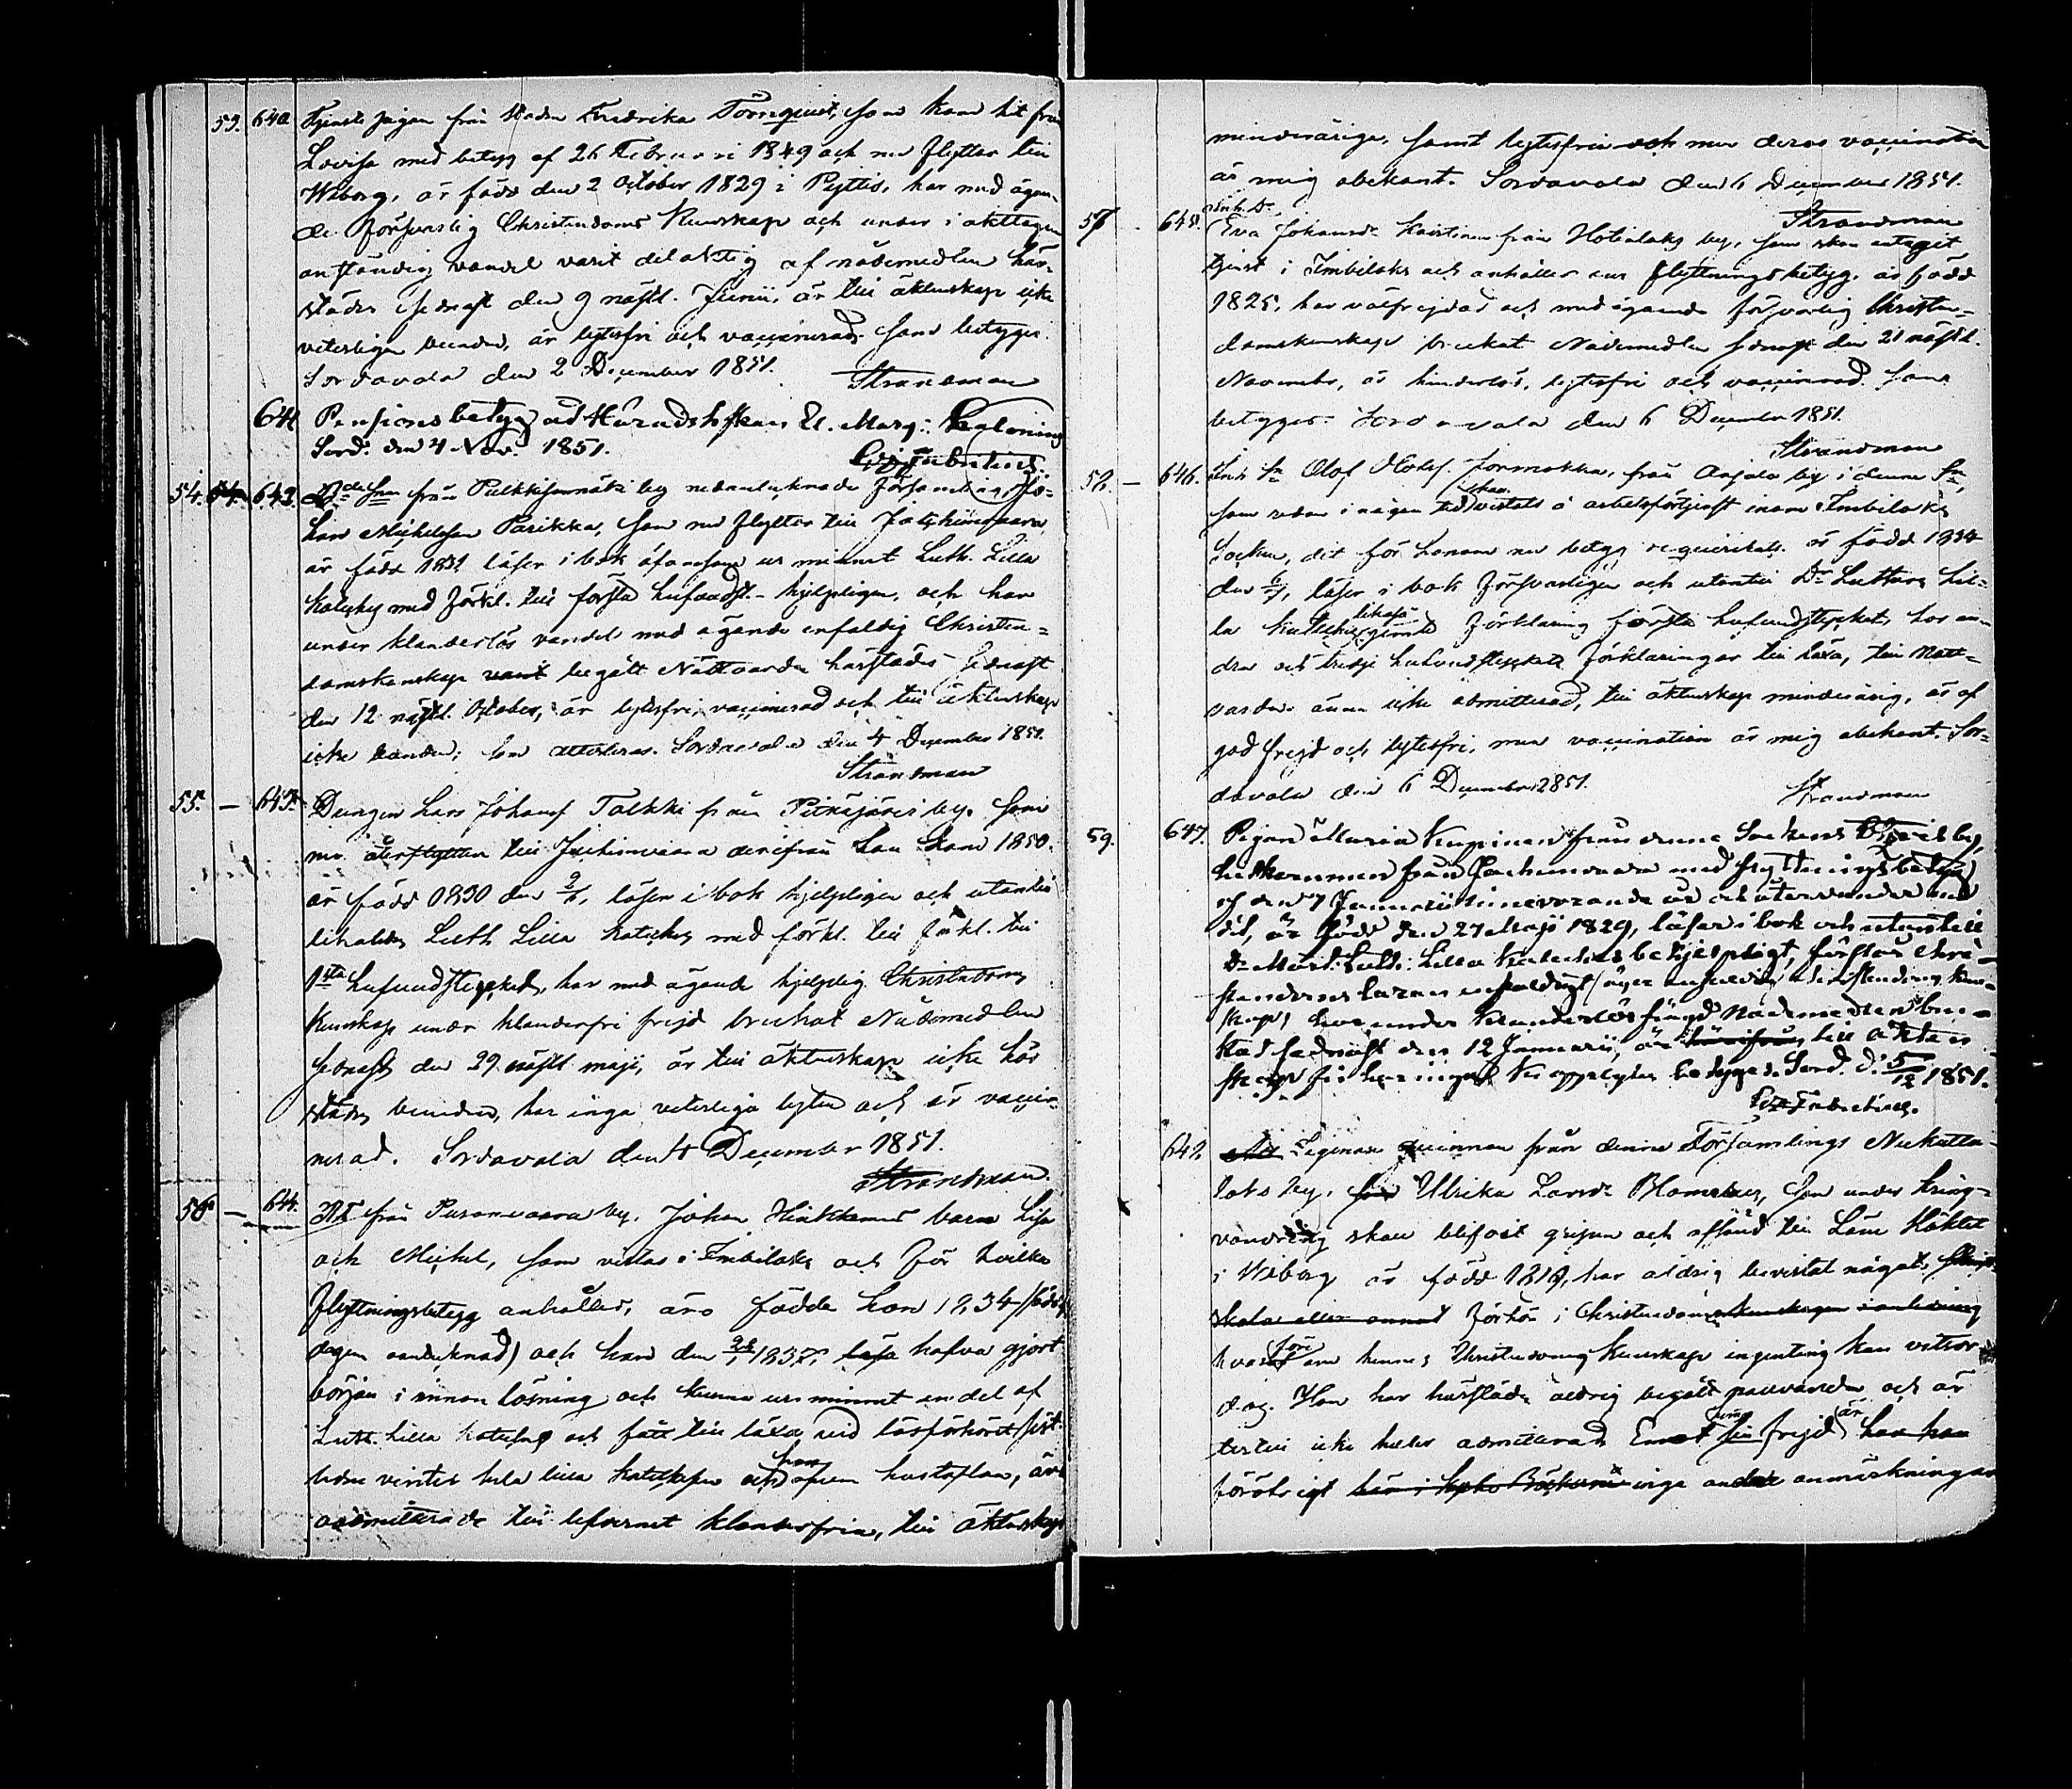 53. 640. Tjenste pigan från staden Fredrika Törnqvist, som kom hit från
Lovisa med betyg af 26 Februari 1849 och nu flyttar till
Wiborg, är född den 2 October 1829 i Pyttis, har med ägan-
de försvarlig Christendoms Kunskap och under iakttagen
anständig vandel varit delaktig af nådemedlen här-
städes sednast den 9 näftl. Junii, är till äktenskap icke
veterligen bunden, är lytesfri och vaccinerad. Som betygar.
Sordavala den 2 December 1851. Strandman
641. Pensionsbetyg ad Häradsh. fkan U. Marg: 
Sord. den 4 Nov. 1851.
54. 54. 642. från Pulkkisennäki by 
Michelsson Parikka, som nu flyttar till Jachimvaara
är född 1831 läser i bok äfvensom ur minnet Luth. Lilla
kateches med förkl. till första hufvudst. hjelpligen, och har
under klanderlös vandel med ägande enfaldig Christen-
domskunskap varit begått Nattvarden härstädes sednast
den 12 näftl. October, är lytesfri, vaccinerad och till äktenskap
icke bunden; som attesteras. Sordavala den 4 December 1851.
Strandman
55. – 643. Drengen Lars Johansf Talkki från Pitkäjärvi by, som
nu återflyttar till Jachimvaara derifrån han kom 1850.
är född 1830 den 9/, läser i bok hjelpligen och utantill
likaledes Luth Lilla kateches med förkl. till förkl. till
1sta hufvudstycket, har med ägande hjelplig Christendoms
Kunskap under klanderfri frejd brukat Nådemedlen
sednast den 29 näftl. maji, är till äktenskap icke här
städes bunden, har inga veterliga lyten och är vaccin-
nerad. Sordavala den 4 December 1851.
Strandman.
56 – 644. Att från Pusonvaara by, Johan Hinkkanens barn Lisa
och Michel, som vistas i Imbilaks och för hvilka
flyttningsbetyg anhålles, äro födde hon 1834 (födelse
dagen oantecknad) och han den 1837, läsa hafva gjort
början i innan läsning och kunna ur minnet en del af
Luth. Lilla kateches och fått till läxa vid läsförhöret sist-
liden vinter hela lilla katekesen och han äfven hustaflan, äro
oadmitterade till lefvernet klanderfria, till äktenskap
minderåriga, samt lytesfria och men deras vaccination
är mig obekant. Sordavala den 6 December 1851.
Strandman
57 – 645. Enk. D:r
Eva Johansd:r Kaistinen från Hotinlaks by, som skon antagit
tjenst i Imbilaks och anhåller om flyttningsbetyg, är född
1825, har välfrejdad och med ägande försvarlig Christen-
domskunskap brukat Nådemedlen sednast den 21 näftl.
November, är hinderlös, lytesfri och vaccinerad. som
betygas. Sordavala den 6 December 1851.
Strandman
58. – 646. Olof Olofsf. Jormakka, från Anjala by i denna Sn,
som redan i någon tid skon vistats å arbetsförtjenst inom Imbilaks
Socken, dit för honom nu betyg requirerats. är född 1834
den 6/, läser i bok försvarligen och utantill Dr Luthers Lil-
la kateches likaså jemte förklaring första hufvudstycket, har an-
dra och tredje hufvudstyckets förklaringar till läxa, till Natt-
varden ännu icke admitterad, till äktenskap minderårig, är af
god frejd och lytesfri, men vaccination är mig obekant. Sor-
davala den 6 December 1851. Strandman
59. 647. Pigan Maria Kupinen från denna Sockens by,
hitkommen från Jachimvaara med flyttningsbetyg
af den 7 Januarii innevarande år och återvänder nu
dit, är född den 27 Maji 1829, läser i bok och utantill
Dr Mårt: Luth: Lilla Kateches behjelpligt, förstår Chri-
stendoms läran enfaldigt (äger enfaldig christendoms kun-
skap) har under klanderlös frejd Nådemedlen bru-
kat sednast den 12 Januarii, är härifrån, till äkten
skap fri har inget kroppslyte. betygas. Sord. d. 5/12 1851.
642. Att Legoman quinnan från denna Församlings Nukutta-
laks by, fru Ulrika Larsd:r Blomerus, som under kring-
vandring skall blifvit gripen och afsänd till Läne Häktet
i Wiborg är född 1818, har aldrig bevistat något, skrift-
skola eller annat förhör i Christendomskunskapen i anledning
hvaraf för om hennes Christendoms kunskap ingenting kan vitsor
das. Hon har härstädes aldrig begått nattvarden och är
dertill icke heller admitterad. Emot sin frejd är har han
föröfrigt här i kyrko Böckerne inga andra anmärkningar